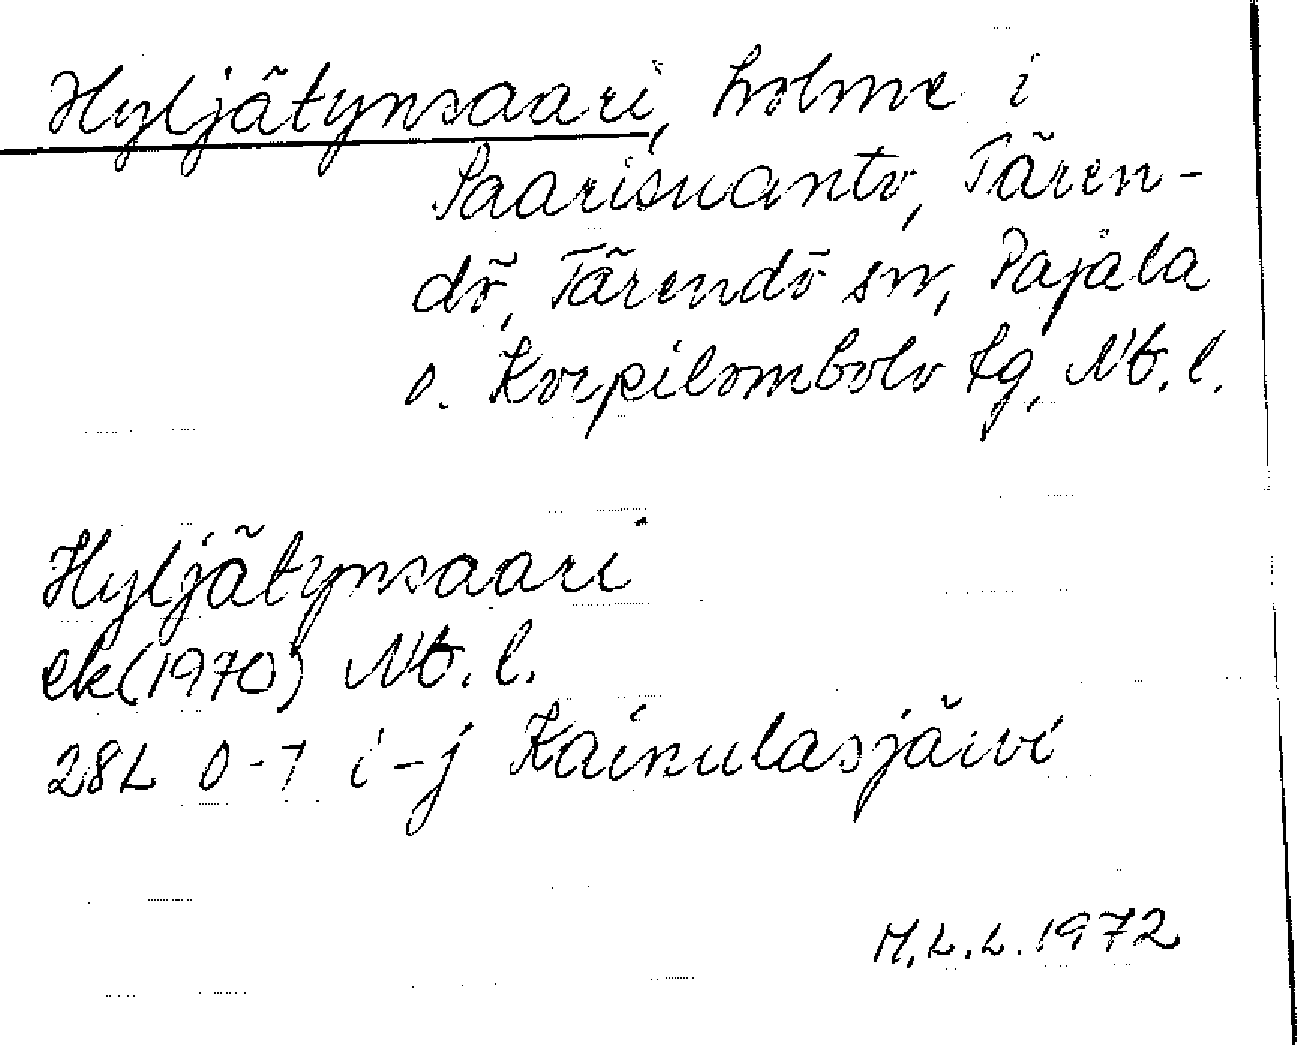 Hyljätynsaari, holme i
Paarisuanto, Tären-
dö, Tärendö sn, Pajala
o. Korpilombolo tg, Nb. l.
Hyljätynsaari
ek (1970) Nb. l.
28L 0-1 i-j Kainulasjärvi
M.L.L. 1972